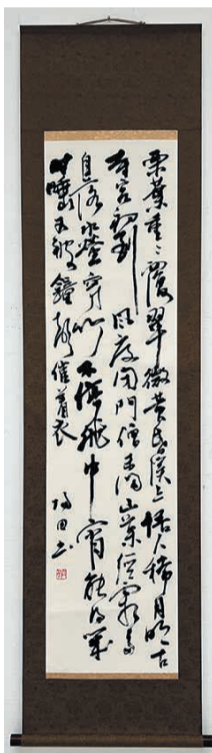 栗葉重〻覆翠微黄昏溪上語人稀月明古
寺客初到風度閑門僧未歸山菓經霜多
自落水螢穿竹不停飛中宵能得幾
時睡又被鐘聲催著衣